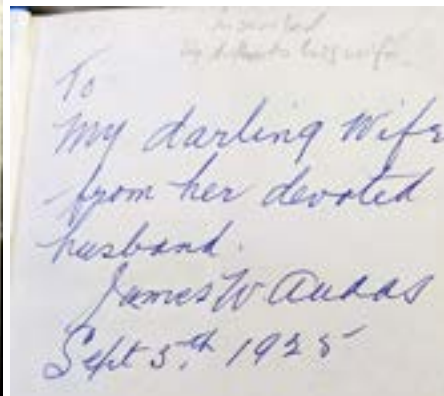 inscribed
To
My darling Wife
from her devoted
husband.
James W Audas
Sept 5th 1925